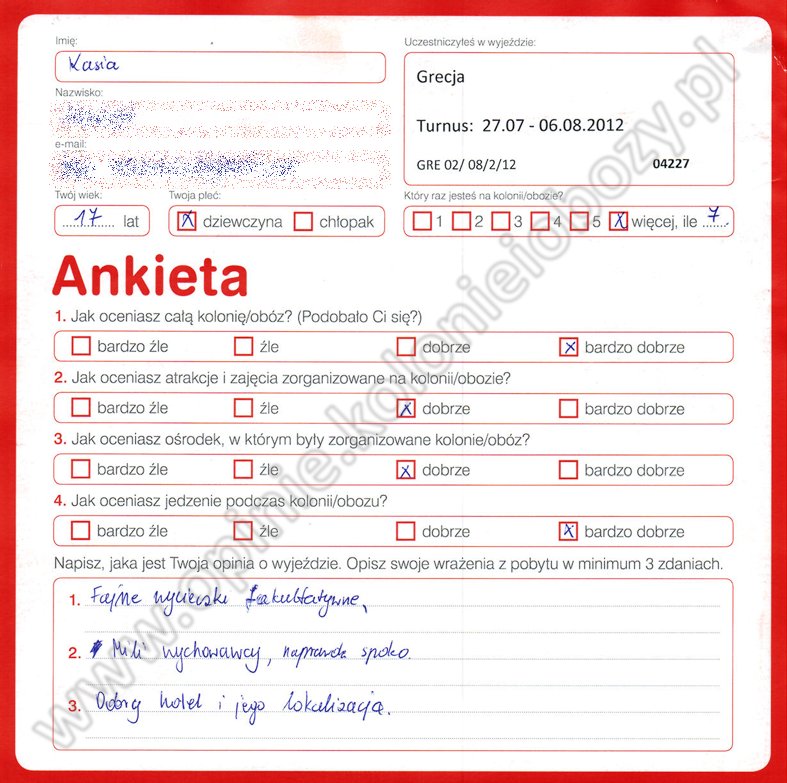 Imię:
Uczestniczyłeś w wyjeździe:
Kasia
Grecja
Nazwisko:
Turnus: 27.07 - 06.08.2012
e-mail:
GRE 02/ 08/2/12 04227
Twój wiek: Twoja płeć: Który raz jesteś na kolonii/obozie?
17 lat X dziewczyna chłopak 1 2 3 4 5 X więcej, ile 7
Ankieta
1. Jak oceniasz całą kolonię/obóz? (Podobało Ci się?)
bardzo źle źle dobrze X bardzo dobrze
2. Jak oceniasz atrakcje i zajęcia zorganizowane na kolonii/obozie?
bardzo źle źle X dobrze bardzo dobrze
3. Jak oceniasz ośrodek, w którym były zorganizowane kolonie/obóz?
bardzo źle źle X dobrze bardzo dobrze
4. Jak oceniasz jedzenie podczas kolonii/obozu?
bardzo źle źle dobrze X bardzo dobrze
Napisz, jaka jest Twoja opinia o wyjeździe. Opisz swoje wrażenia z pobytu w minimum 3 zdaniach.
1. Fajne wycieczki fakultatywne,
2. Mili wychowawcy, naprawdę spoko.
3. Dobry hotel i jego lokalizacja.
www.opinie.kolonieiobozy.pl